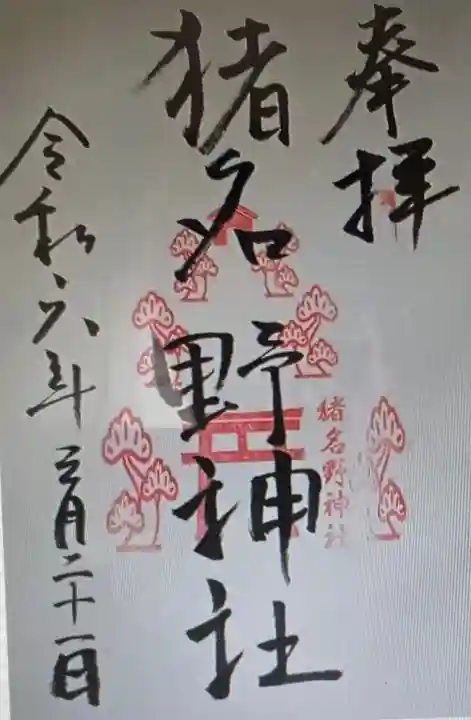 奉拝
猪名野神社
猪名野神社
令和六年三月二十一日